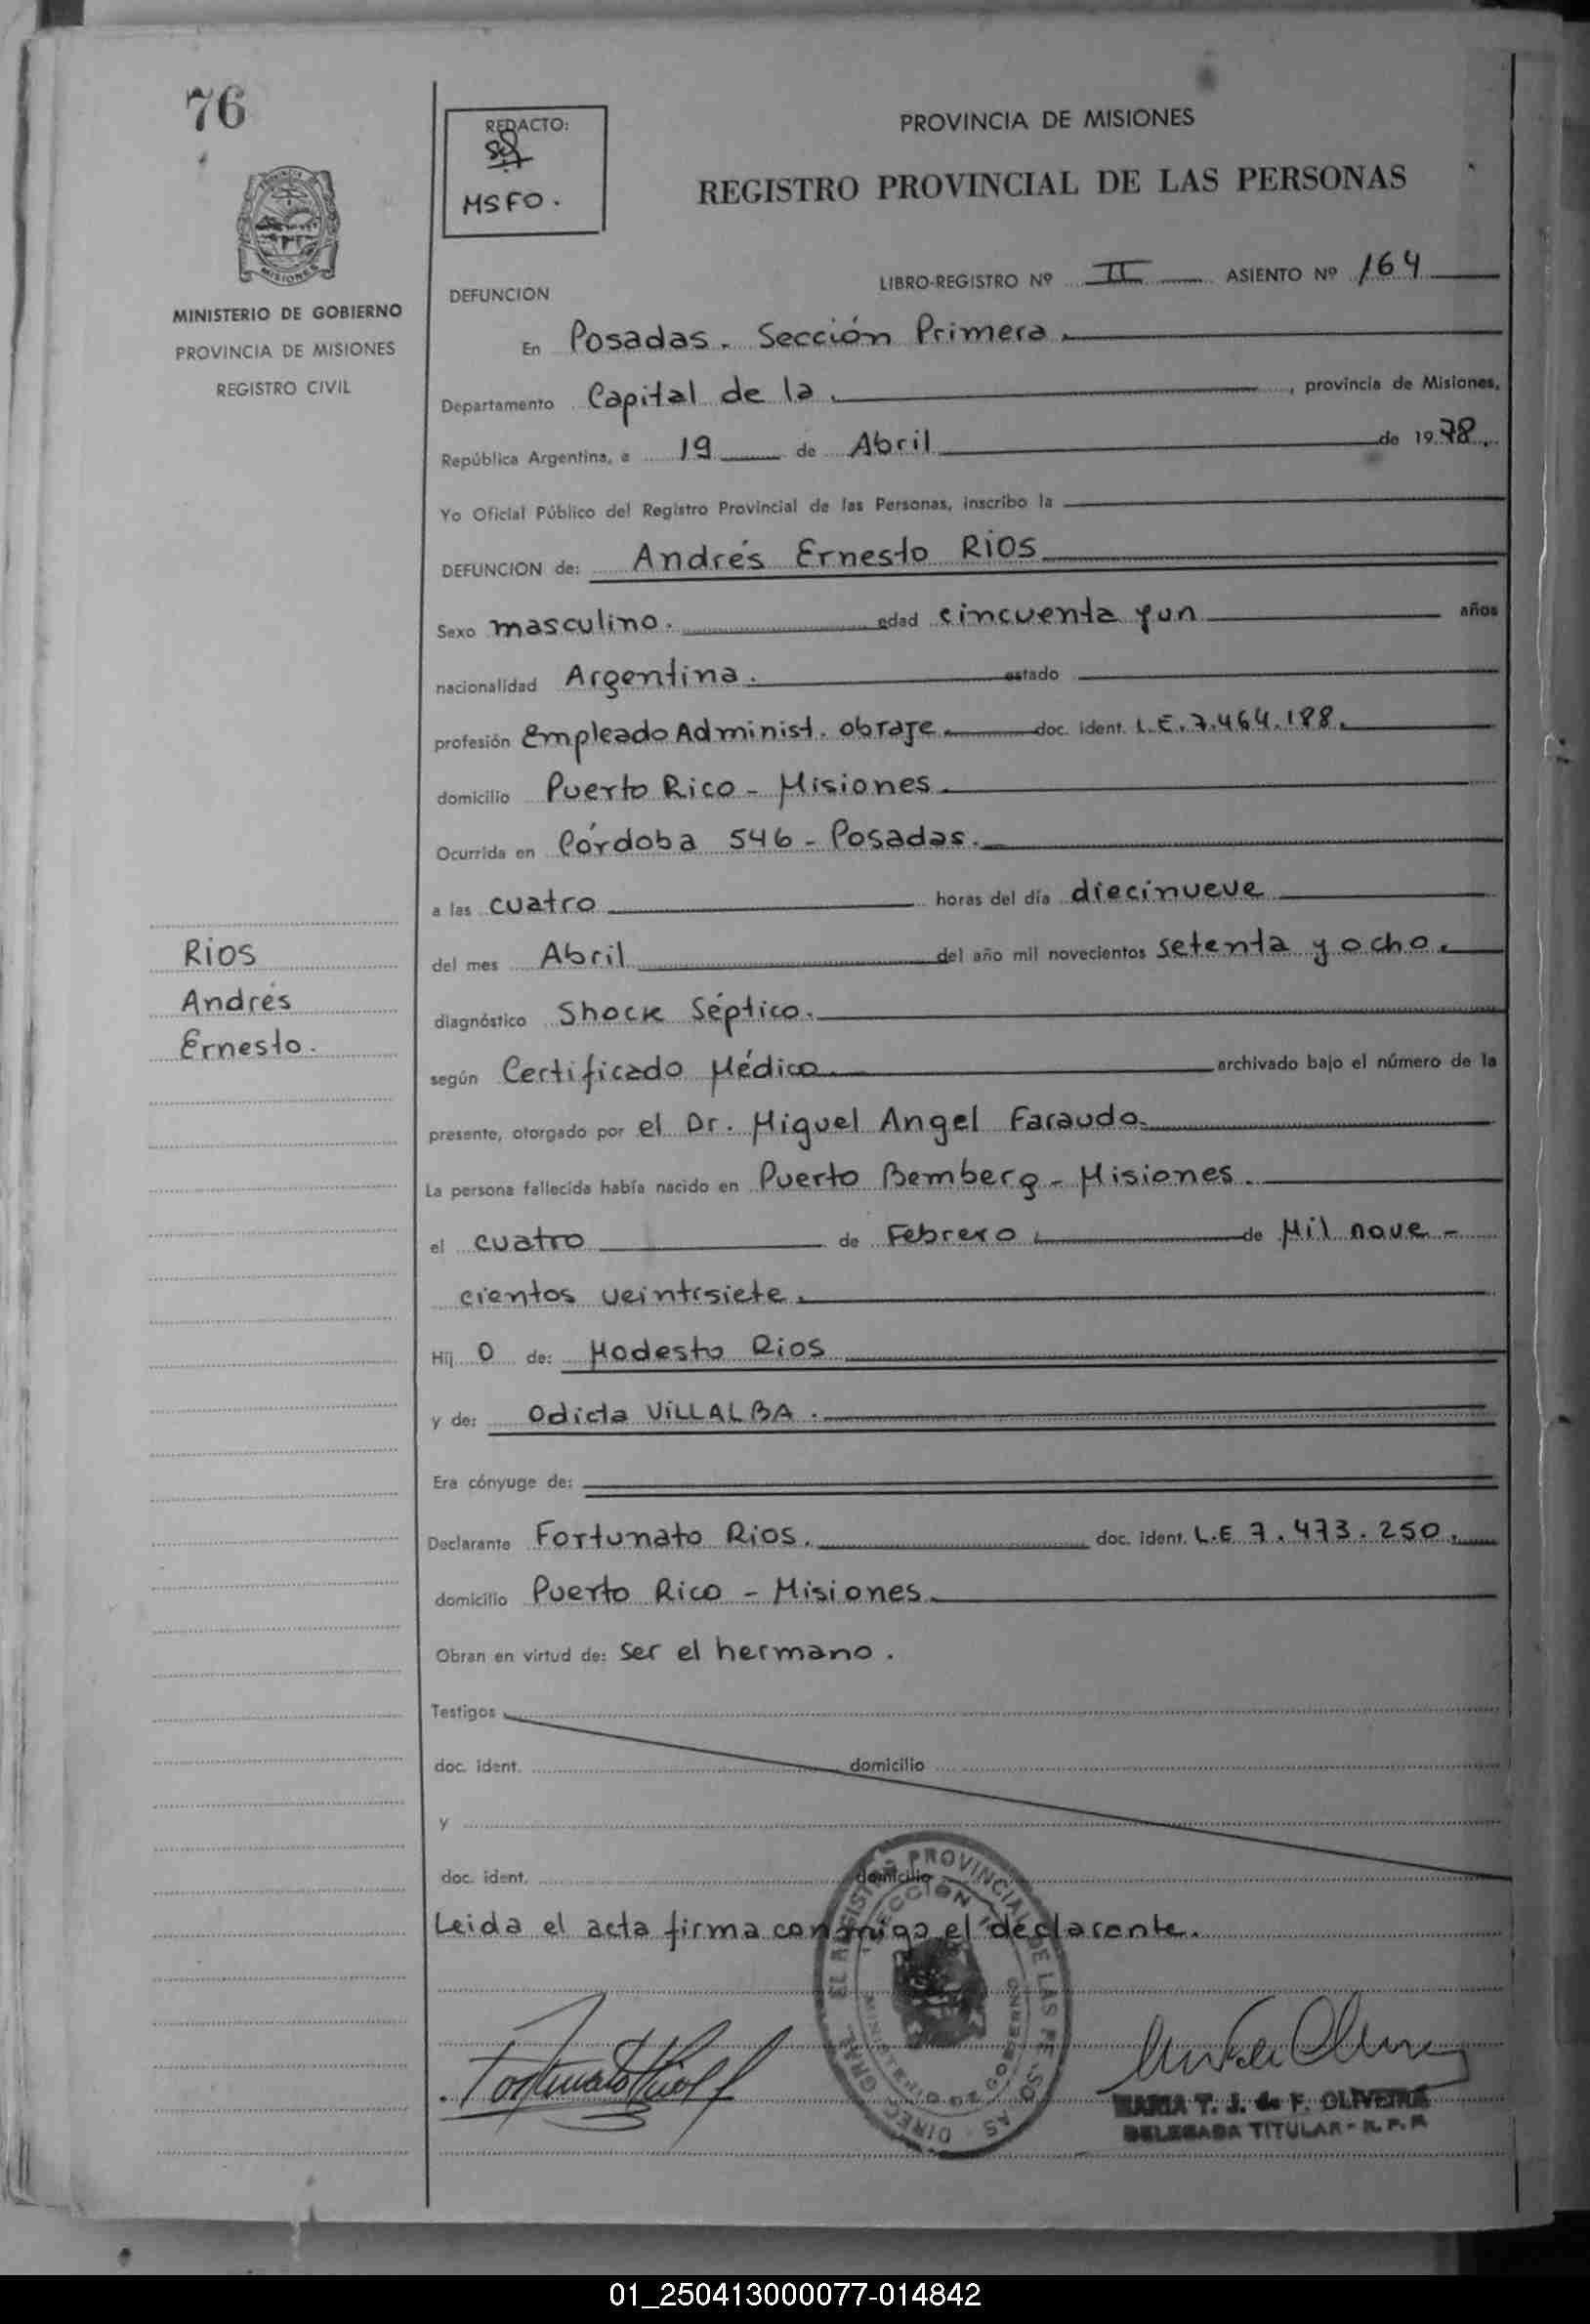 76
REDACTO:
MSFO.
PROVINCIA DE MISIONES
REGISTRO PROVINCIAL DE LAS PERSONAS
MISIONES
MINISTERIO DE GOBIERNO
PROVINCIA DE MISIONES
REGISTRO CIVIL
LIBRO-REGISTRO Nº II ASIENTO Nº 164
DEFUNCION
En Posadas. Sección Primera.
Departamento Capital de la. , provincia de Misiones,
República Argentina, a 19 de Abril de 1978.
Yo Oficial Público del Registro Provincial de las Personas, inscribo la
DEFUNCION de: Andrés Ernesto RIOS
Sexo masculino. edad cincuenta y un años
nacionalidad Argentina. estado
profesión Empleado Administ. obraje. doc. ident. L.E. 7.464.188.
domicilio Puerto Rico - Misiones.
Ocurrida en Córdoba 546 - Posadas.
a las cuatro horas del día diecinueve
del mes Abril del año mil novecientos setenta y ocho.
Rios
Andrés
Ernesto.
diagnóstico Shock Séptico.
según Certificado Médico archivado bajo el número de la
presente, otorgado por el Dr. Miguel Angel Faraudo.
La persona fallecida había nacido en Puerto Bemberg - Misiones.
el cuatro de Febrero de Mil nove -
cientos veintisiete.
Hij o de: Modesto Rios
y de: Odicta VILLALBA.
Era cónyuge de:
Declarante Fortunato Rios. doc. ident. L.E 7.473.250.
domicilio Puerto Rico - Misiones.
Obran en virtud de: ser el hermano.
Testigos
doc. ident. domicilio
y
doc. ident. domicilio
Leida el acta firma conmigo el declarante.
Fortunato Rios
MARIA T. J. de F. OLIVEIRA
DELEGADA TITULAR - R.P.P.
01_250413000077-014842